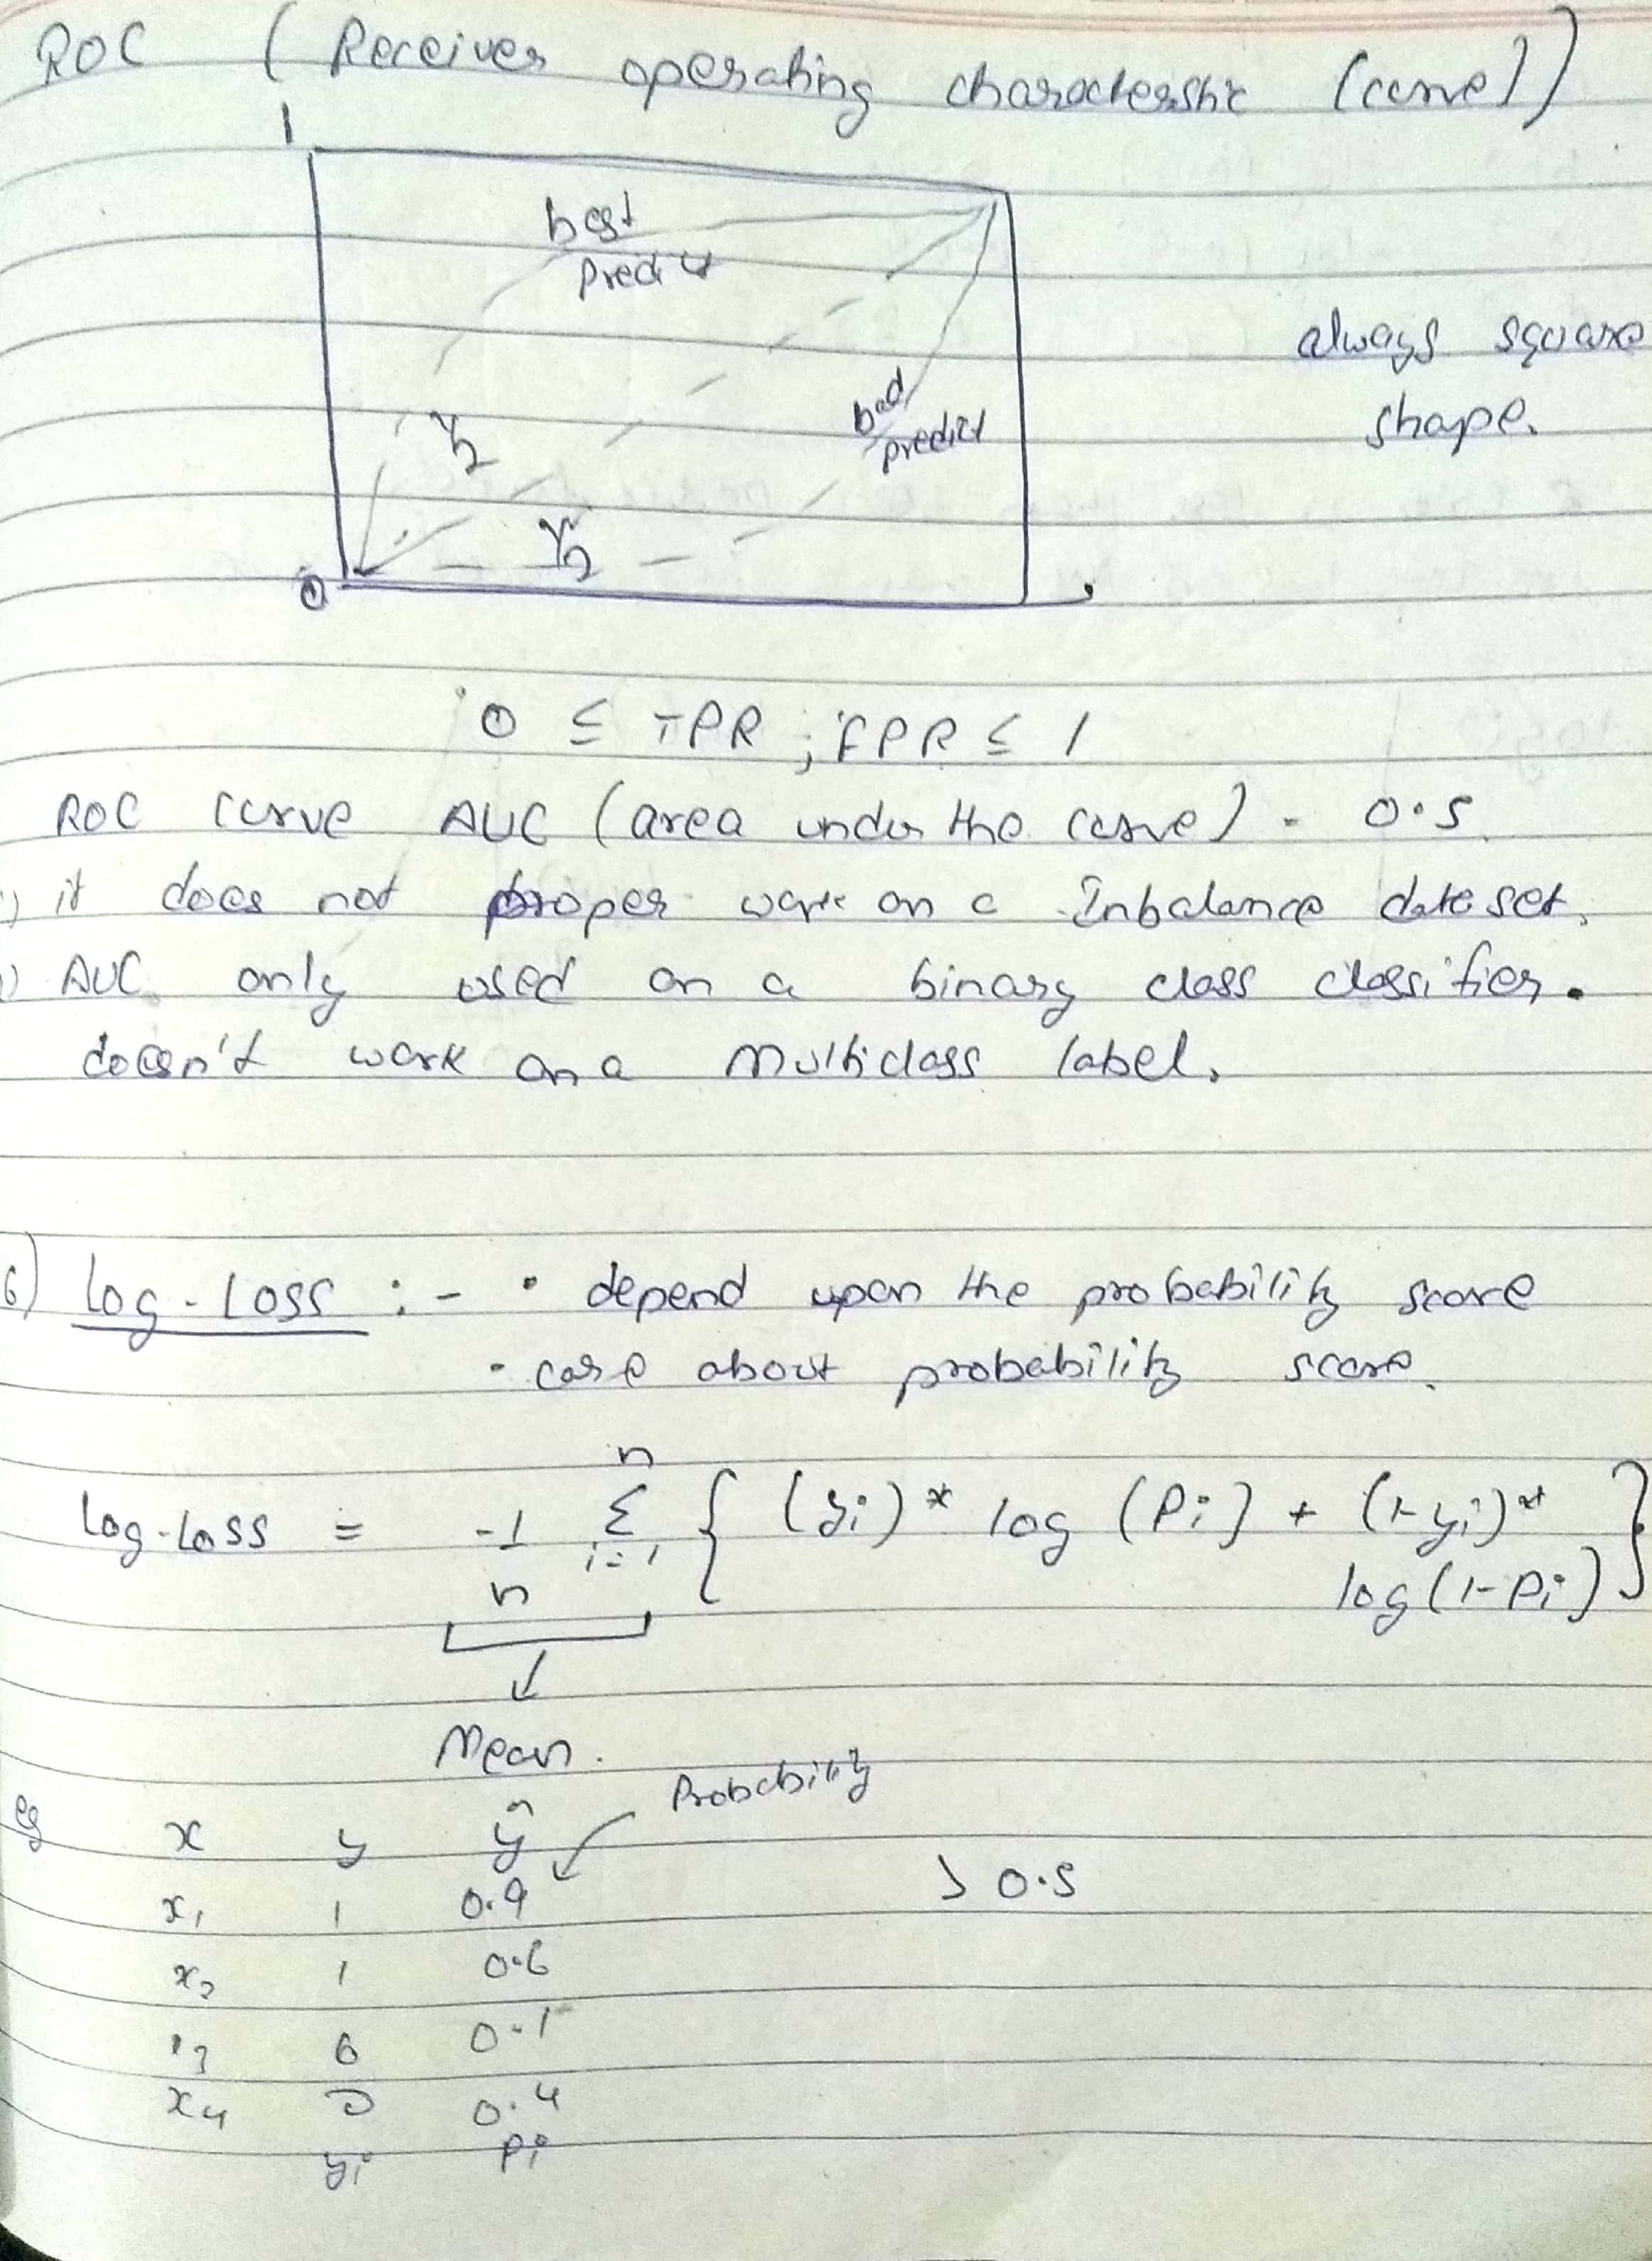 ROC ( Receiver operating charactersstic (curve))
1
best
predict
always square
shape.
bad
predict
1/2
1/2
0
0 ≤ TPR ; FPR ≤ 1
ROC curve AUC (area under the curve) - 0.5
) it does not proper work on a Inbalance dataset.
) AUC only used on a binary class classifier.
doesn't work on a multiclass label.
6) Log-Loss :- • depend upon the probability score
• care about probability score.
Log-Loss = -1/n Σ_{i=1}^{n} { (yi) * log (Pi) + (1-yi) *
log(1-Pi) }
↓
Mean.
Probability
eg x y ŷ
x1 1 0.9 > 0.5
x2 1 0.6
x3 0 0.1
x4 0 0.4
yi Pi